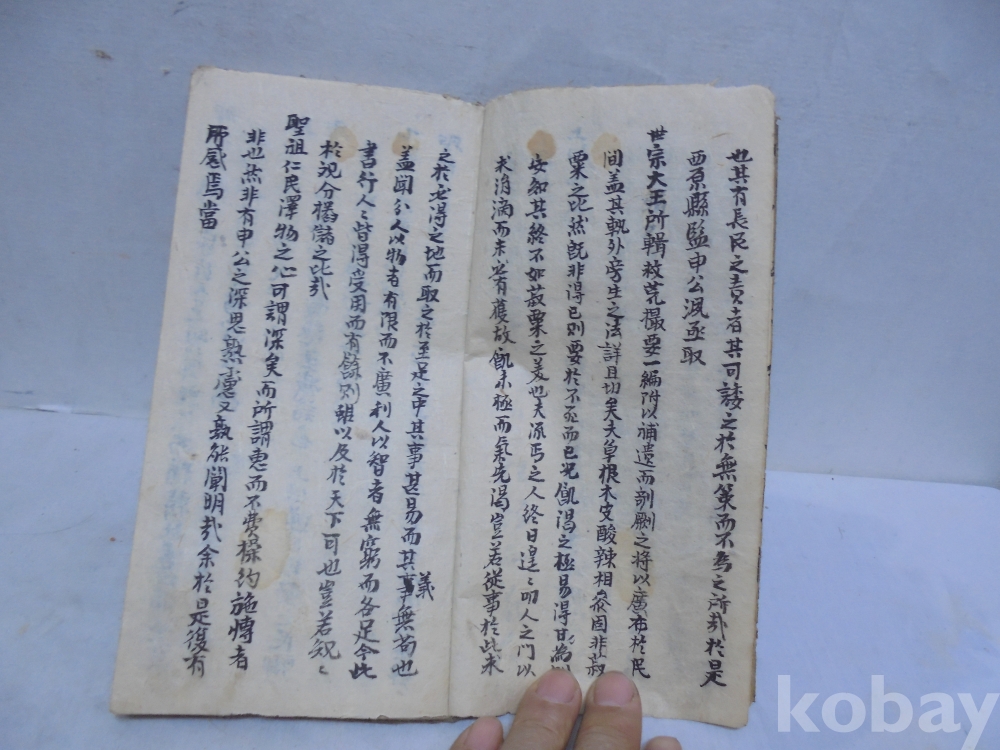 也其有長民之責者其可諉之於無策而不爲之所哉於是
西原縣監申公洬亟取
世宗大王所輯救荒撮要一編附以補遺而剞劂之將以廣布於民
間盖其執外旁生之法詳且切矣夫草根木皮酸辣相叅固非菽
粟之比然旣非得已則要於不死而已况飢渴之極易得甘
安知其終不如菽粟之美也夫流丐之人終日遑〻叩人之門以
求涓滴而未必有獲故飢未極而氣先渴豈若從事於此求
之於必得之地而取之於至足之中其事甚易而其事無苟也
義
盖聞分人以物者有限而不廣利人以智者無窮而各足今此
書行人〻皆得受用而有餘則雖以及於天下可也豈若規〻
於祝分橘諸之比哉
聖祖仁民澤物之心可謂深矣而所謂惠而不費操約施博者
非也然非有申公之深思熟慮又孰能闡明哉余於是復有
所感焉當
kobay